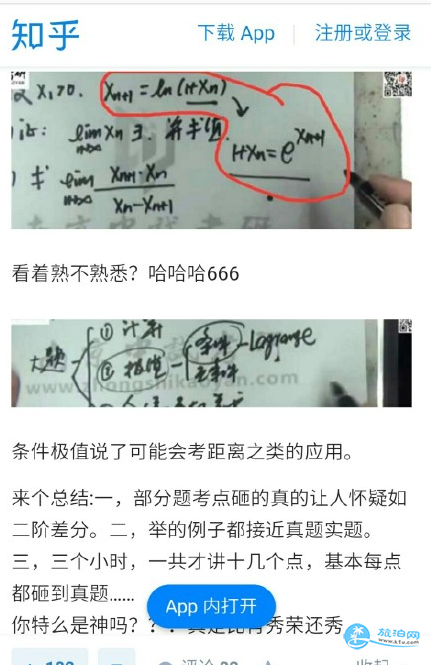 知乎
下载 App
注册或登录
设 X₁>0. Xn+1=ln(1+Xn)
证: lim Xn ∃ 并求值.
n→∞
1+Xn=e^Xn+1
求 lim Xn+1·Xn / Xn-Xn+1
n→∞
看着熟不熟悉？哈哈哈666
大题
① 计算
② 极值 条件 - Lagrange
无条件
www.zhongshikaoyan.com
条件极值说了可能会考距离之类的应用。
来个总结:一，部分题考点砸的真的让人怀疑如
二阶差分。二，举的例子都接近真题实题。
三，三个小时，一共才讲十几个点，基本每点
都砸到真题......
App 内打开
你特么是神吗？？
秀荣还秀
旅泊网
kc5u.com